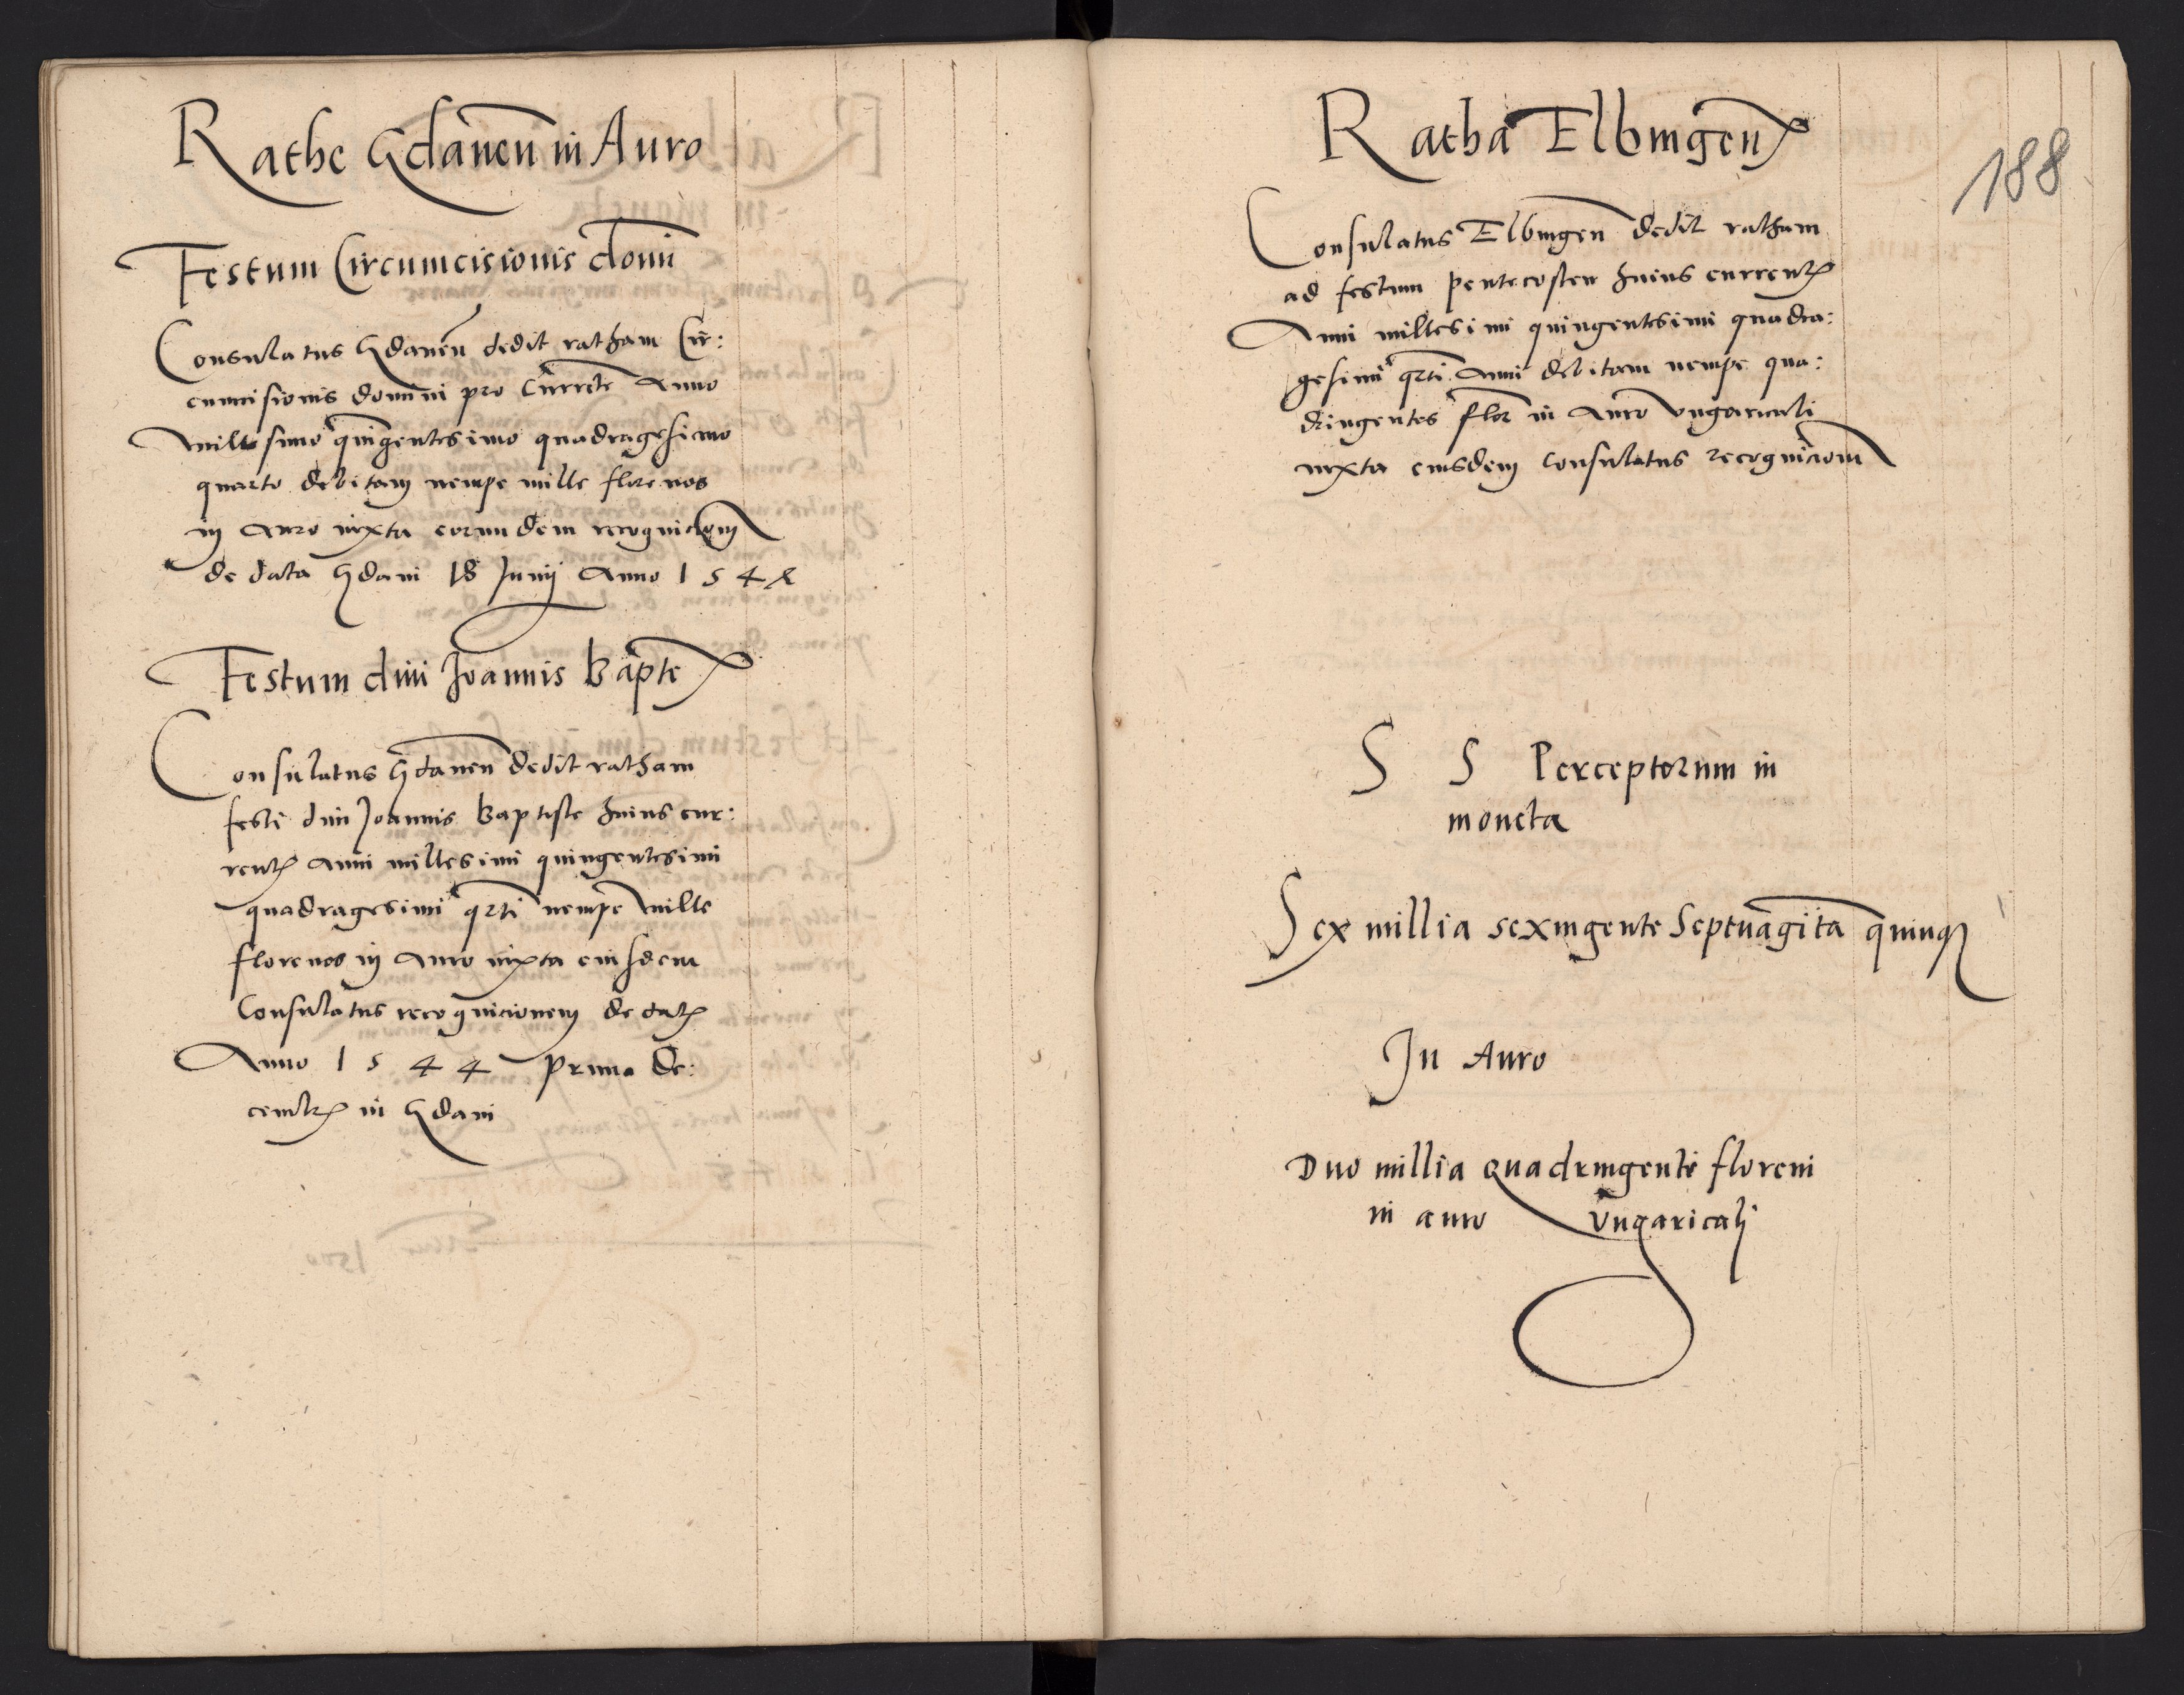 Rathe Gdanen in Auro
Festum Circumcisionis domi
Consulatus Gdanen dedit ratham Cir:
cumcisionis domini pro Currete Anno
millesimo quingentesimo quadragesimo
quarto debitam nempe mille florenos
in Auro iuxta eorundem recognicionem
de data Gdani 18 Junij Anno 1544
Festum divi Joannis Bapte
Consulatus Gdanen dedit ratham
festi divi Joannis Baptiste huius cur:
rentis Anni millesimi quingentesimi
quadragesimi qrti nempe mille
florenos in Auro iuxta eiusdem
Consulatus recognicionem de datis
Anno 1544 prima De:
cembris in Gdani
Ratha Elbingen
188
Consulatus Elbingen dedit ratham
ad festum pentecosten huius currentis
Anni millesimi quingentesimi quadra:
gesimi qrti Anni debitam nempe qua:
dringentos flor in Auro Vngaricali
iuxta eiusdem Consulatus recognicionem
S S Perceptorum in
moneta
Sex millia sexingente Septuagita quinque
In Auro
Duo millia quadringenti floreni
in auro Vngaricali